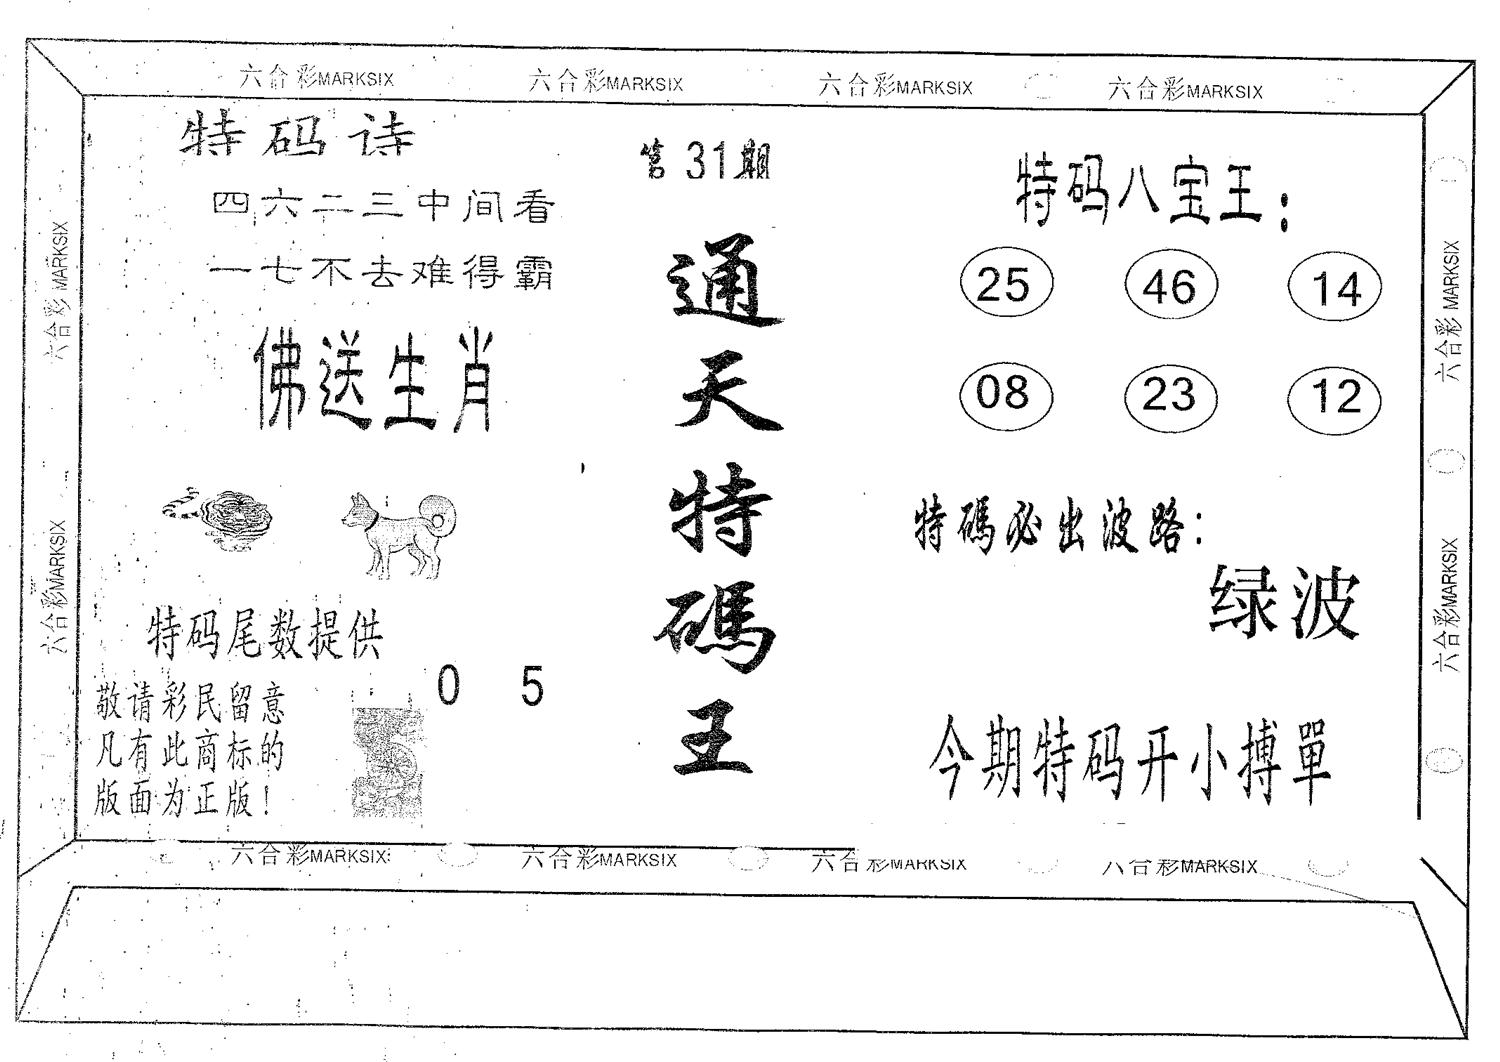 六合彩MARKSIX 六合彩MARKSIX 六合彩MARKSIX 六合彩MARKSIX
特码诗
四六二三中间看
一七不去难得霸
佛送生肖
特码尾数提供
0 5
敬请彩民留意
凡有此商标的
版面为正版！
第31期
通天特碼王
特码八宝王：
25 46 14
08 23 12
特碼必出波路：
绿波
今期特码开小搏單
六合彩MARKSIX
六合彩MARKSIX
六合彩MARKSIX
六合彩MARKSIX
六合彩MARKSIX 六合彩MARKSIX 六合彩MARKSIX 六合彩MARKSIX